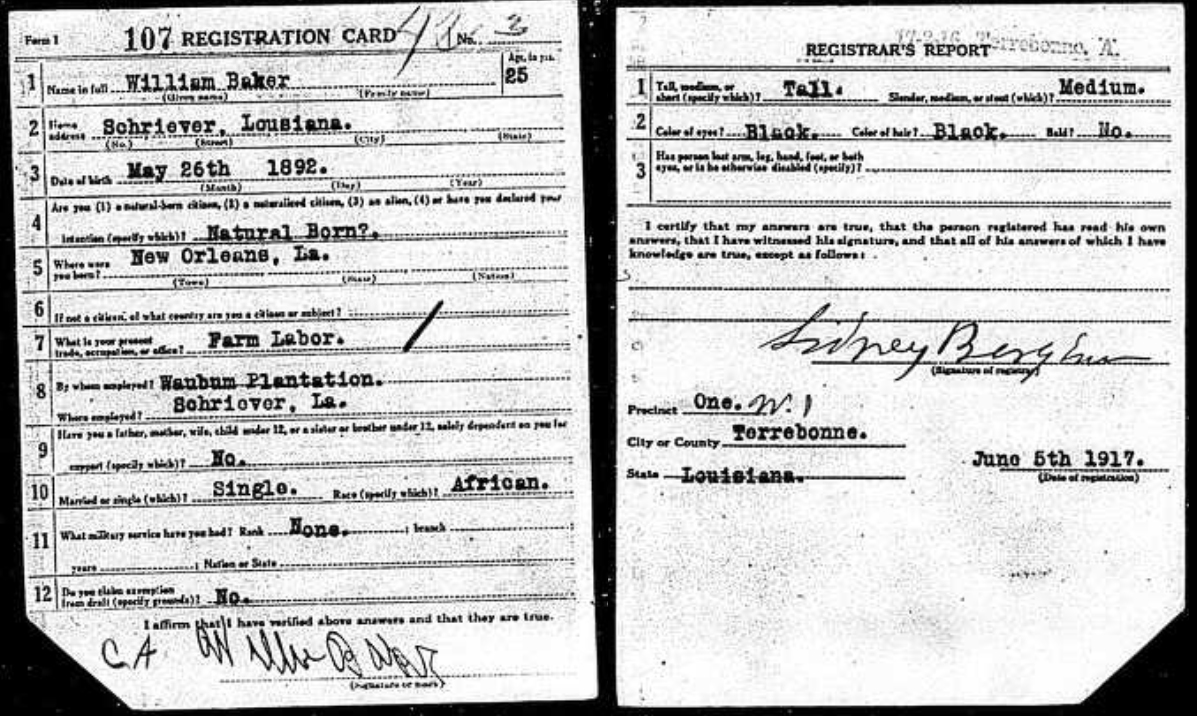 Form 1 107 REGISTRATION CARD No. 3
1 Name in full William Baker Age, in yrs. 25
(Given name) (Family name)
2 Home address Schriever, Lousiana.
(No.) (Street) (City) (State)
3 Date of birth May 26th 1892.
(Month) (Day) (Year)
4 Are you (1) a natural-born citizen, (2) a naturalized citizen, (3) an alien, (4) or have you declared your
intention (specify which)? Natural Born?.
5 Where were you born? New Orleans, La.
(Town) (State) (Nation)
6 If not a citizen, of what country are you a citizen or subject?
7 What is your present trade, occupation, or office? Farm Labor.
8 By whom employed? Waubum Plantation.
Where employed? Schriever, La.
9 Have you a father, mother, wife, child under 12, or a sister or brother under 12, solely dependent on you for
support (specify which)? No.
10 Married or single (which)? Single. Race (specify which)? African.
11 What military service have you had? Rank None. ; branch
years ; Nation or State
12 Do you claim exemption from draft (specify grounds)? No.
I affirm that I have verified above answers and that they are true.
C.A.
(Signature or mark)
17-2-16 Terrebonne, A.
REGISTRAR'S REPORT
1 Tall, medium, or short (specify which)? Tall. Slender, medium, or stout (which)? Medium.
2 Color of eyes? Black. Color of hair? Black. Bald? No.
3 Has person lost arm, leg, hand, foot, or both
eyes, or is he otherwise disabled (specify)?
I certify that my answers are true, that the person registered has read his own
answers, that I have witnessed his signature, and that all of his answers of which I have
knowledge are true, except as follows:
Sidney
(Signature of registrar)
Precinct One. W. 1
City or County Terrebonne.
State Louisiana.
June 5th 1917.
(Date of registration)